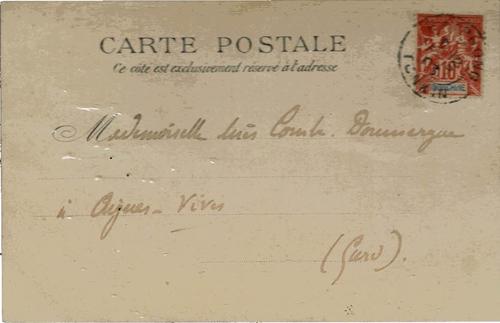 CARTE POSTALE
Ce côté est exclusivement réservé à l'adresse
10
Mademoiselle Inès Combe. Doumergue
à Aigues-Vives
(Gard).